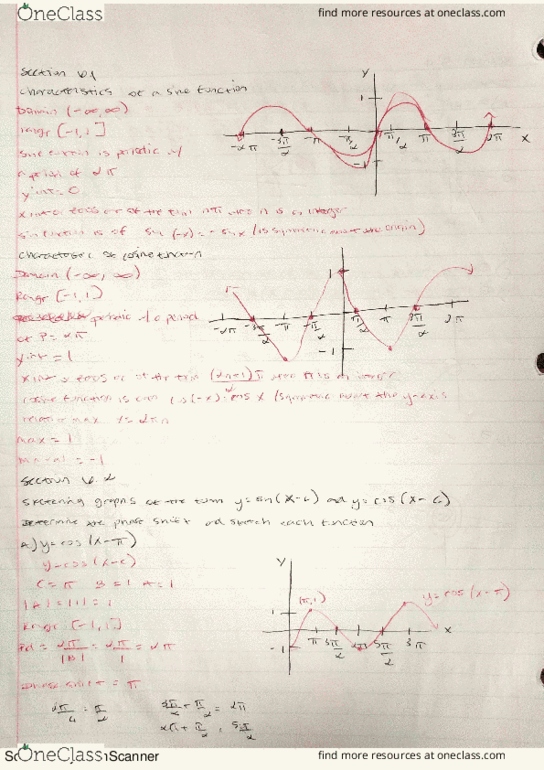 OneClass
find more resources at oneclass.com
Section 6.1
characteristics of a sine function
Domain (-∞,∞)
range [-1,1]
sine function is periodic w/
a period of 2π
y int = 0
x int or zeros are of the form nπ where n is an integer
sin function is odd sin(-x) = -sin x (is symmetric about the origin)
y
1
-2π -3π/2 -π -π/2 π/2 π 3π/2 2π x
-1
characteristic of cosine function
Domain (-∞, ∞)
Range [-1,1]
periodic w/ a period
of P = 2π
y int = 1
x int or zeros are of the form (2n+1)π/2 where n is an integer
cosine function is even cos(-x) = cos x (symmetric about the y-axis
relative max x = 2πn
max = 1
= -1
1
-2π -3π/2 -π -π/2 π/2 π 3π/2 2π
-1
Section 6.2
sketching graphs of the form y = sin(x-c) and y = cos(x-c)
Determine the phase shift and sketch each function
A) y = cos(x-π)
y = cos(x-c)
C = π B = 1 A = 1
|A| = |1| = 1
Range [-1,1]
Pd = 2π/|B| = 2π/1 = 2π
phase shift = π
2π/4 = π/2
3π/2 + π/2 = 2π
y
(π,1)
y = cos(x-π)
1
π 3π/2 2π 5π/2 3π x
-1
OneClass
Scanner
find more resources at oneclass.com